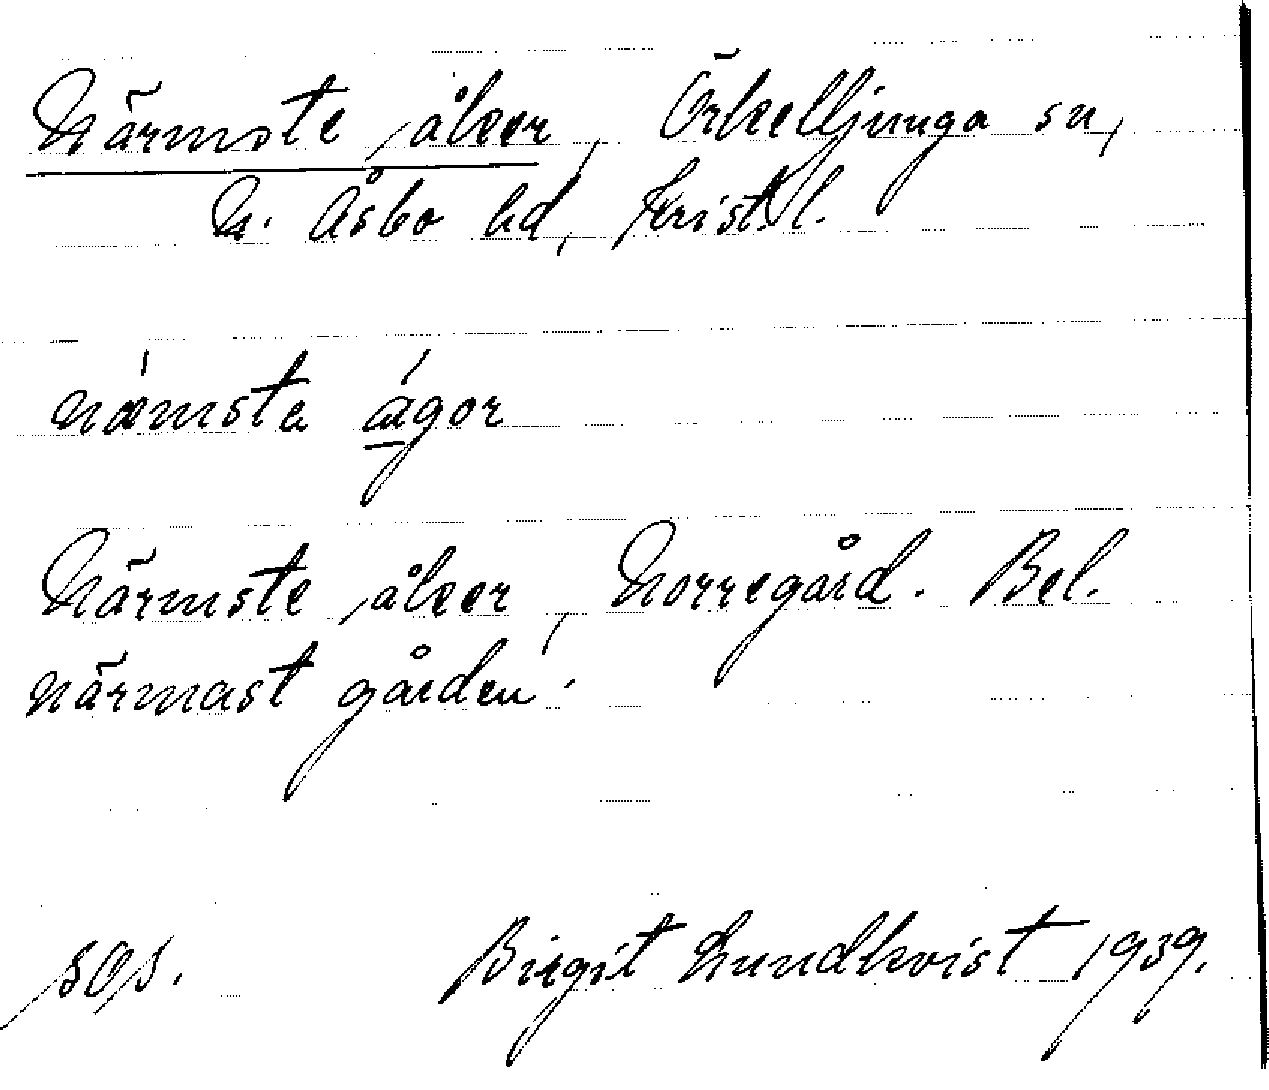 Närmste åker, Örkelljunga sn,
N. Åsbo hd, Krist. l.
næmsta ågor
Närmste åker, Norregård. Bel.
närmast gården.
sos.
Birgit Lundkvist 1939.